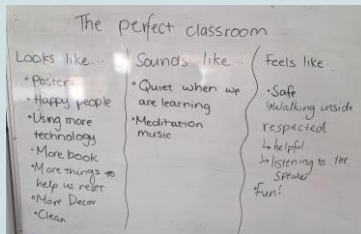 The perfect classroom
Looks like...
• Poster
• Happy people
• Using more
technology
• More book
• More things to
help us reset
• More Decor
• Clean
Sounds like...
• Quiet when we
are learning
• Meditation
music
Feels like..
• Safe
↳ Walking inside
respected
↳ helpful
↳ listening to the
speaker
• Fun!